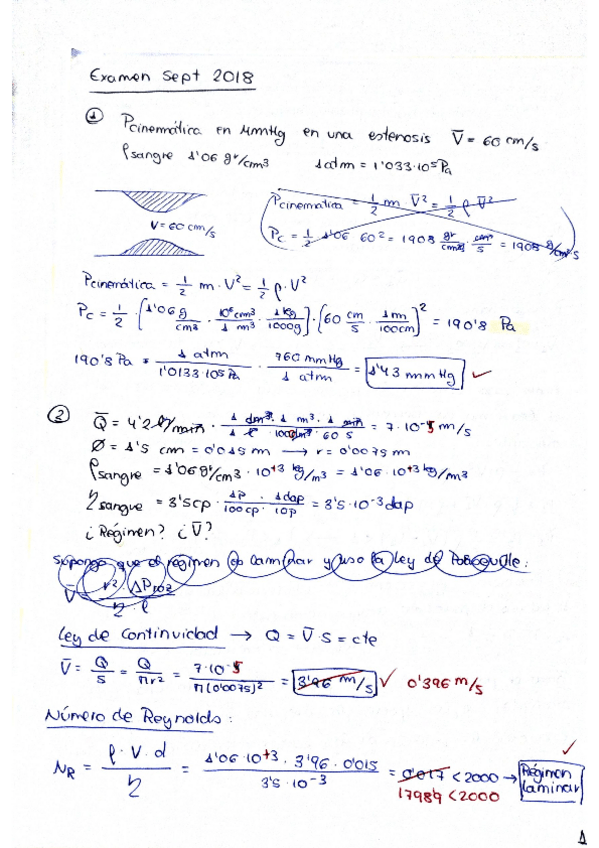 Examen Sept 2018
① Pcinemática en mmHg en una estenosis V̄ = 60 cm/s
ρsangre 1'06 gr/cm3 1 atm = 1'033·10⁵ Pa
V = 60 cm/s
Pcinematica = 1/2 m V̄² = 1/2 ρ V̄²
Pc = 1/2 1'06 60² = 1908 gr/cm3 · cm/s = 1908 g/cm²s
Pcinemática = 1/2 m · V² = 1/2 ρ · V²
Pc = 1/2 · [1'06 g/cm3 · 10⁶cm3/1 m3 · 1 kg/1000g] · [60 cm/s · 1m/100cm]² = 190'8 Pa
190'8 Pa * 1 atm/1'0133·10⁵ Pa · 760 mmHg/1 atm = 1'43 mmHg ✓
② Q̄ = 4'2 l/min · 1 dm³ · 1 m³ · 1 min/1 l · 1000dm³ · 60 s = 7·10⁻⁵ m/s
Ø = 1'5 cm = 0'015 m → r = 0'0075 m
ρsangre = 1'06 gr/cm3 · 10⁺³ kg/m3 = 1'06·10⁺³ kg/m3
ηsangre = 3'5cp · 1P · 1dap/100cp · 10p = 3'5·10⁻³ dap
¿Régimen? ¿V̄?
Supongo que el régimen es laminar y uso la ley de Poiseuille:
V̄ = r² · ΔP /η l
Ley de continuidad → Q = V̄·S = cte
V̄ = Q/S = Q/πr² = 7·10⁻⁵/π(0'0075)² = 3'96 m/s ✓ 0'396 m/s
Número de Reynolds:
NR = ρ·V·d/η = 1'06·10⁺³ · 3'96 · 0'015/3'5·10⁻³ = 0'017 < 2000 → Régimen laminar ✓
17989 < 2000
1